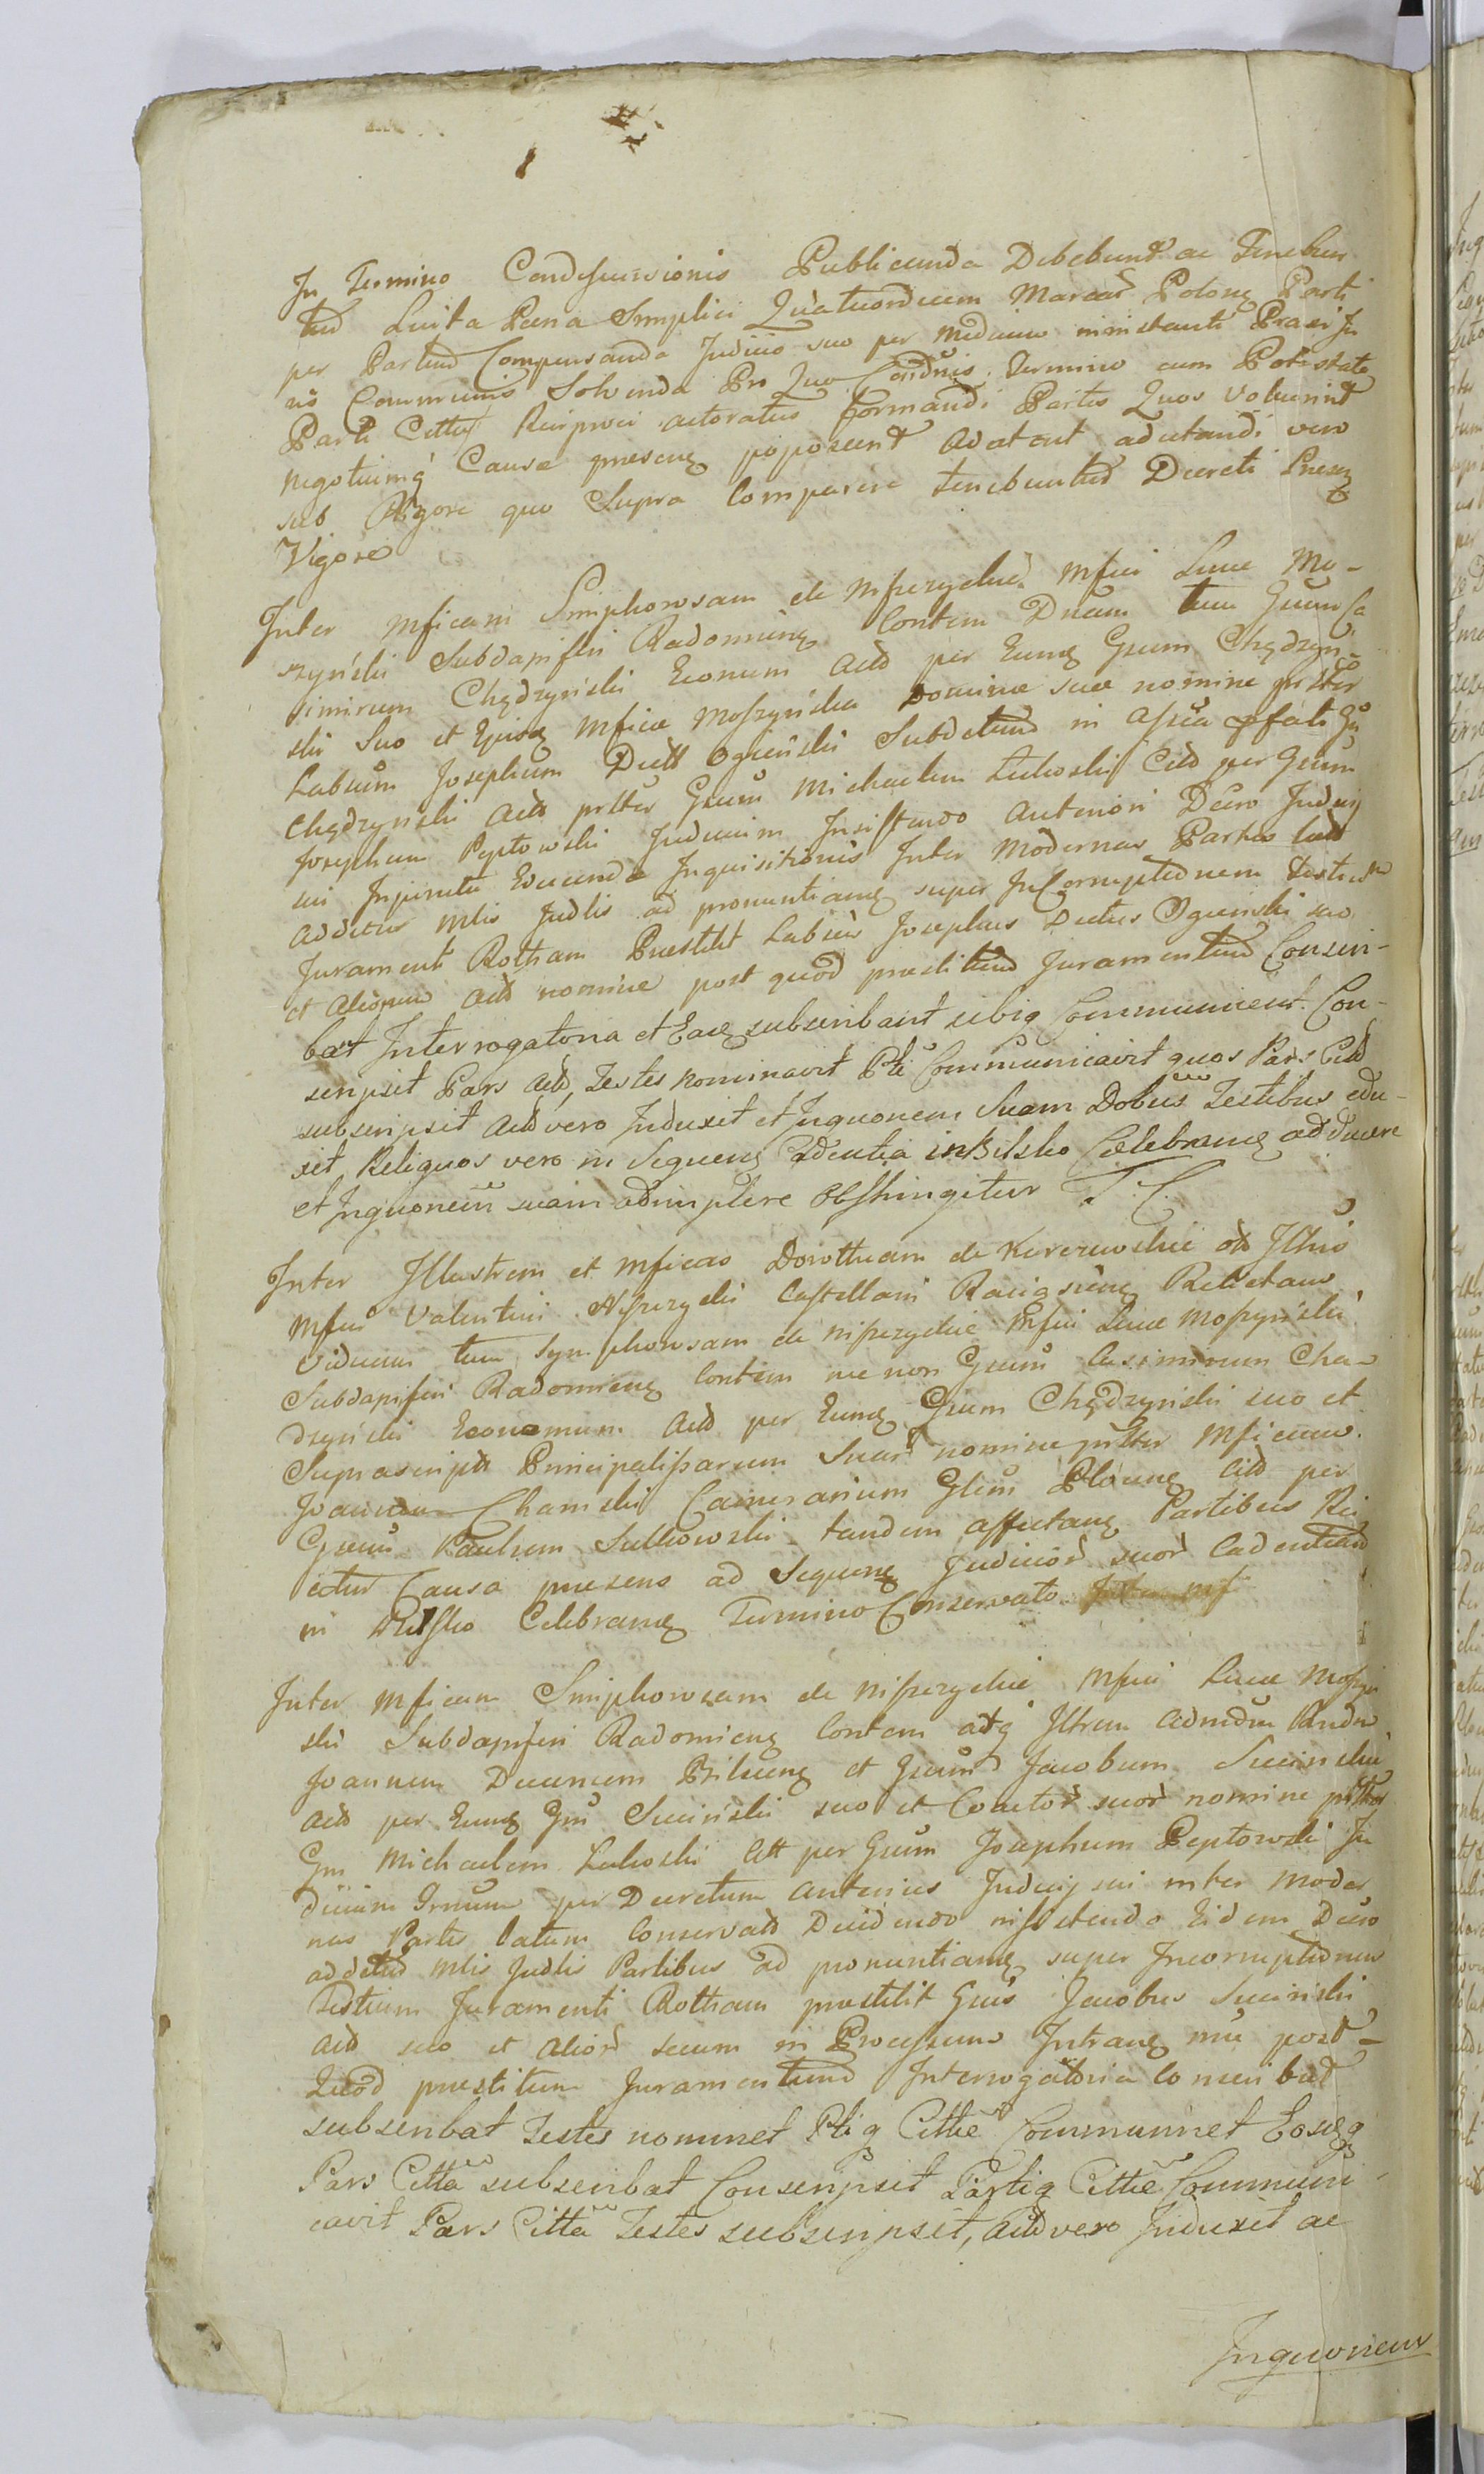 In Termino Condescensionis Publicanda Debebunt ac Tenebun
tur Luita Pæna Simplici Quatuordecem Marcar Polonq Parti
per Partem Compensanda Judicio suo per Medium ministranti Praxi Ju
ris Communis Solvenda Pro Quo Condnis Termino cum Potestate
Parti Cittæ Reipvæ actoratus formandi Partes Quos voluerint
negotiumq Causæ præsenq poposcerit adcitent adcitandi vero
sub Rigore quo Supra Comparere tenebuntur Decreti Præsenq
Vigore
Inter Mficam Simphorosam de Niszczyckie Mfici Lucæ Mo-
szyński Subdapiferi Radomienq Contem Dnam tum Gsum Ca
simirum Chędzyński Econum Actt per Eumq Gsum Chędzyń-
ski Suo et Ejusq Mficæ Moszyńska Dominæ suæ nomine prstter
Labsum Josephum Dictt Ogieński Subdetum in Assia pfati Gsi
Chędzyński Actt prstter Gsum Michaelem Lukoski Citt per Gsum
Josephum Peptowski Judicium Insistendo Anteriori Decro Judicij
sui Injuncta Evicenda Inquisitionis Inter Modernas Partes latt
addetur Mtis Judlis ad pronuntianq super Incorruptionem Testium
Juramenti Rotham Præstitit Labsus Josephus Dictus Ogieński suo
et aliorum Actt nomine post quod præstitum Juramentum Conscri-
bat Interrogatoria et Eaq subscribant sibiq Communicent. Con-
scripsit Pars Actt, Testes nominavit Pti Communicavit quos Pars Citt
subscripsit Actt vero Induxit et Inquonem Suam Dobus Testibus edu-
xit, Reliquos vero in Sequenq Cadentia in Bilsko Celebranq adducere
et Inquonem suam adimplere Obstringitur T. C.
Inter Illustrem et Mficas Dorotheam de Karczewskie ott Illris
Mfici Valentini Niszczycki Castellani Raciąsienq Relictam
Viduam tum Symphorosam de Niszczyckie Mfici Lucæ Moszyński
Subdapiferi Radomienq Contem nec non Gsum Casimirum Chę-
dzyński Economum Actt per Eumq Gsum Chędzyński suo et
Suprascriptt Principalissarum Suar nomine prstter Mficum
Joannem Chamski Camerarium Glem Plocenq Citt per
Gsum Paulum Sulkowski tandem affectanq Partibus Rei
citur Causa præsens ad Sequenq Judicior suor Cadentiam
in Bilsko Celebranq Termino Conservato
Inter Mficam Simphorosam de Niszczyckie Mfici Lucæ Moszyń
ski Subdapiferi Radomienq Contem atq Illrem Admdm Rndm
Joannem Decanum Bilscenq et Gsum Jacobum Suciński
Actt per Eumq Gsm Suciński suo et Coactor suor nomine prstter
Gsm Michaelem Lukoski Citt per Gsum Josephum Peptowski Ju
dicium Prnum per Decretum anterius Judicij sui inter Moder
nas Partes latum Conservatt Decidendo insistendo Eidem Decro
addetur Mtis Judlis Partibus ad pronuntianq super Incorruptionem
Testium Juramenti Rotham præstitit Gsus Jacobus Suciński
Actt suo et alior secum in Processum Intranq nne post-
Quod præstitum Juramentum Interrogatoria conscribat
subscribat Testes nominet Ptiq Cittæ Communicet Eosqq
Pars Citta subscribat Conscripsit Partiq Cittæ Communi-
cavit Pars Citta Testes subscripsit, Actt vero Induxit ac
Inquonem